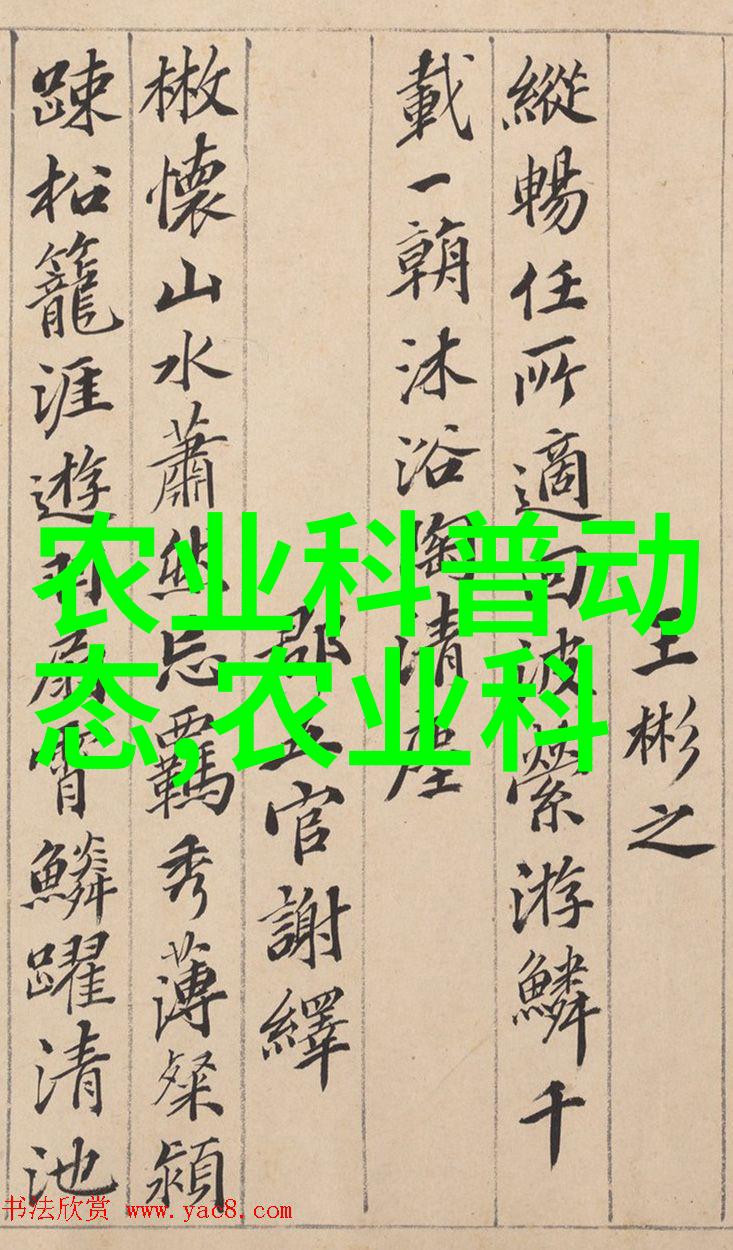 农业科普动
态,农业科
王彬之
縱暢任所適回波縈游鱗千
載一朝沐浴陶清塵
郡五官謝繹
散懷山水蕭然忘羈秀薄粲穎
踈松籠涯遊羽扇霄鱗躍清池
书法欣赏 www.yac8.com